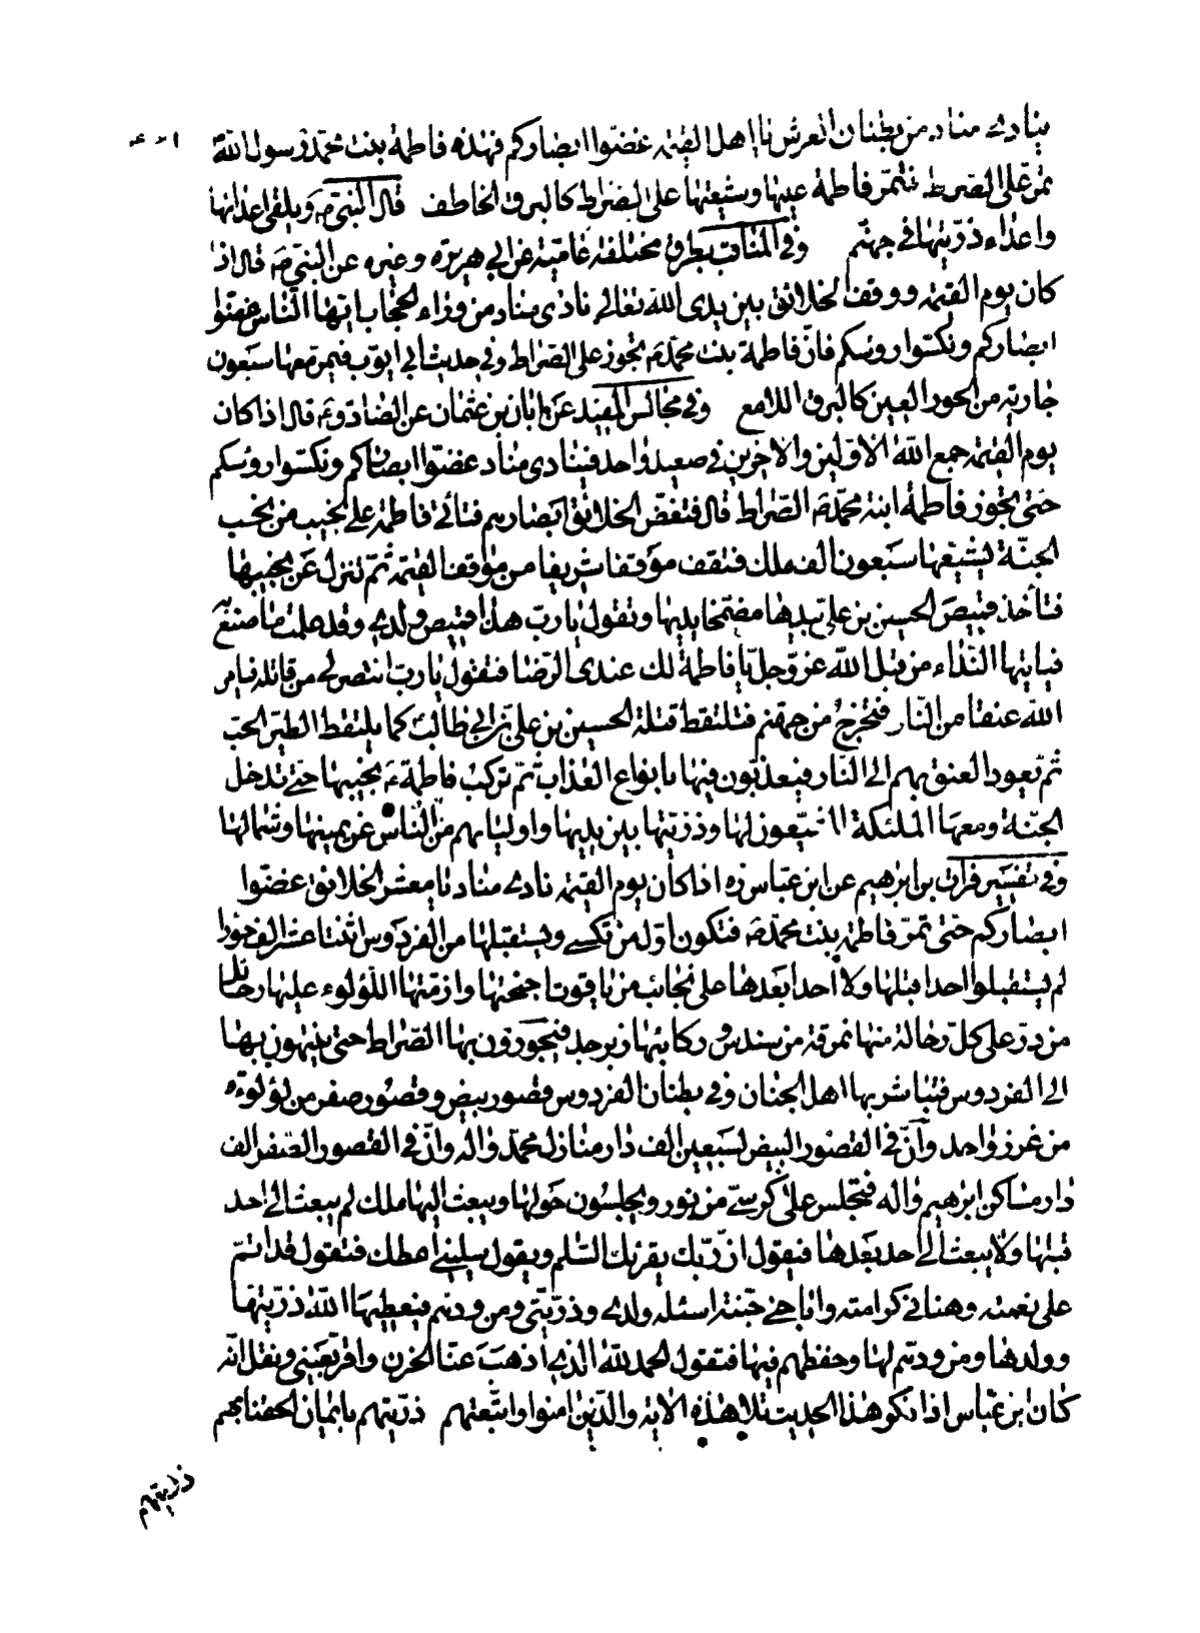 ينادى مناد من بطنان العرش يا اهل القيمة غضوا ابصاركم فهذه فاطمة بنت محمد رسول الله
تمر على الصراط فتمر فاطمة ع و شيعتها على الصراط كالبرق الخاطف قال النبى ص و يلقى اعدائها
و اعداء ذريتها فى جهنم و فى المناقب بطرق مختلفة عامية عن ابى هريرة و غيره عن النبى ص قال اذا
كان يوم القيمة و وقف الخلائق بين يدى الله تعالى نادى مناد من وراء الحجاب ايها الناس غضوا
ابصاركم و نكسوا رؤسكم فان فاطمة بنت محمد ص تجوز على الصراط و فى حديث ابى ايوب فيمر معها سبعون
جارية من الحور العين كالبرق اللامع و فى مجالس المفيد عن ابان بن عثمان عن الصادق ع قال اذا كان
يوم القيمة جمع الله الاولين و الاخرين فى صعيد واحد فينادى مناد غضوا ابصاركم و نكسوا رؤسكم
حتى تجوز فاطمة ابنة محمد ص الصراط قال فتغض الخلائق ابصارهم فتاتى فاطمة ع على نجيب من نجب
الجنة يشيعها سبعون الف ملك فتقف موقفا شريفا من مواقف القيمة ثم تنزل عن نجيبها
فتأخذ قميص الحسين بن على بيدها مضمخا بدمه و تقول يا رب هذا قميص ولدى و قد علمت ما صنع به
فيأتيها النداء من قبل الله عز و جل يا فاطمة لك عندى الرضا فتقول يا رب انتصر لى من قاتله فيامر
الله عنقا من النار فتخرج من جهنم فتلتقط قتلة الحسين بن على بن ابى طالب كما يلتقط الطير الحب
ثم تعود العنق بهم الى النار فيعذبون فيها بانواع العذاب ثم تركب فاطمة ع نجيبها حتى تدخل
الجنة و معها الملئكة المشيعون لها و ذريتها بين يديها و اوليائهم من الناس عن يمينها و شمالها
و فى تفسير فرات بن ابرهيم عن ابن عباس ره اذا كان يوم القيمة نادى مناد يا معشر الخلائق غضوا
ابصاركم حتى تمر فاطمة بنت محمد ص فتكون اول من تكسى و يستقبلها من الفردوس اثنتا عشر الف حوراء
لم يستقبلوا احدا قبلها و لا احدا بعدها على نجائب من ياقوت اجنحتها و ازمتها اللؤلوء عليها رحائل
من در على كل رحالة منها نمرقة من سندس و ركابها زبرجد فيجوزون بها الصراط حتى ينتهون بها
الى الفردوس فتباشر بها اهل الجنان و فى بطنان الفردوس قصور بيض و قصور صفر من لؤلوة
من غرز واحد و ان فى القصور البيض لسبعين الف دار منازل محمد و اله و ان فى القصور الصفر الف
دار مساكن ابرهيم و اله فتجلس على كرسى من نور و يجلسون حولها و يبعث اليها ملك لم يبعث الى احد
قبلها و لا يبعث الى احد بعدها فيقول ان ربك يقرئك السلم و يقول سلينى اعطك فتقول قد اتم
على نعمته و هنانى كرامته و اباحنى جنته اسئله ولدى و ذريتى و من ودهم فيعطيها الله ذريتها
و ولدها و من ودهم لها و حفظهم فيها فتقول الحمد لله الذى اذهب عنا الحزن و اقر بعينى و نقل انه
كان ابن عباس اذا ذكر هذا الحديث تلا هذه الاية و الذين امنوا و اتبعتهم ذريتهم بايمان الحقنا بهم
ذريتهم